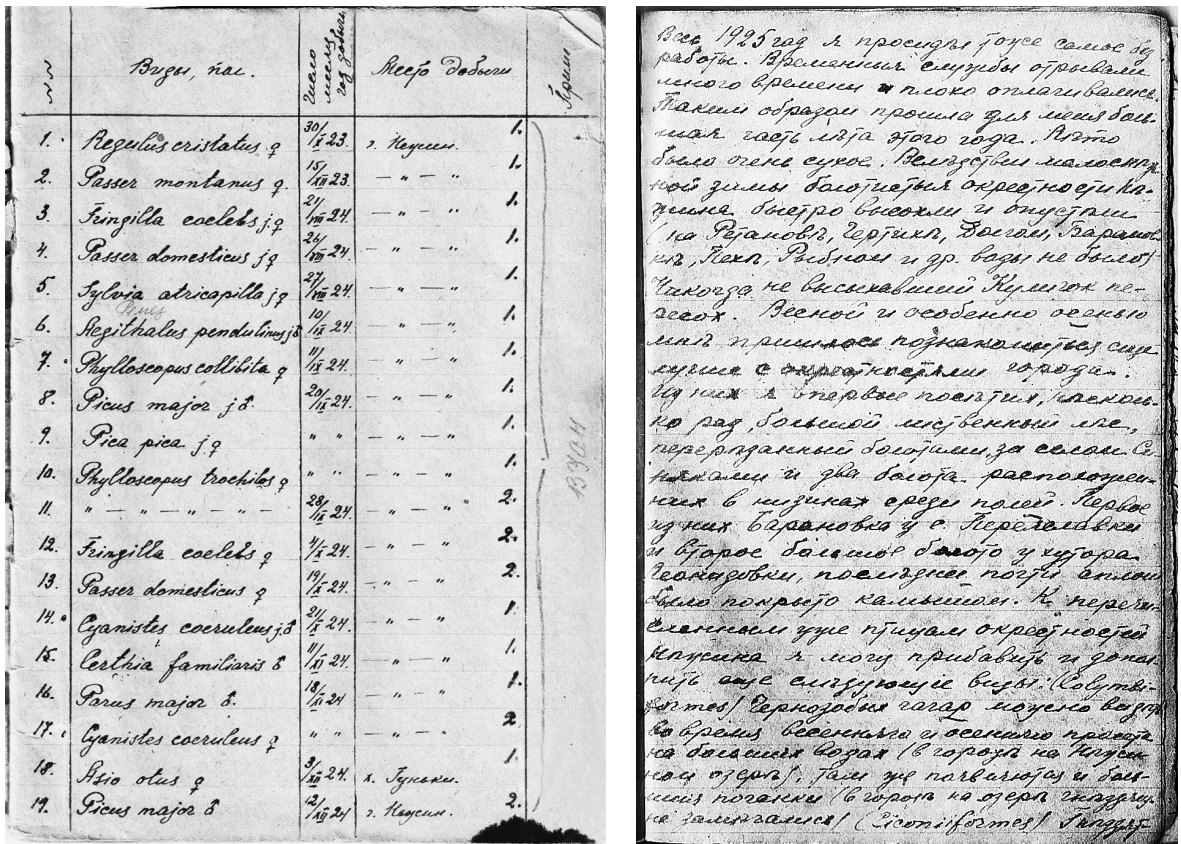 №№ Виды, пол. Число месяц год добычи Место добычи Прим
1. Regulus cristatus ♀ 30/X 23. г. Нежин. 1.
2. Passer montanus ♀ 15/XII 23 — „ — „ 1.
3. Fringilla coelebs j ♀ 21/VIII 24. — „ — „ 1.
4. Passer domesticus j ♀ 26/VIII 24 — „ — „ 1.
5. Sylvia atricapilla j ♀ 27/VIII 24. — „ — „ 1.
6. Aegithalus pendulinus j ♂ 10/IX 24 — „ — „ 1.
7. Phylloscopus collibita ♀ 11/IX 24. — „ — „ 1.
8. Picus major j ♂. 20/IX 24. — „ — „ 1.
9. Pica pica j ♀ „ „ — „ — „ 1.
10. Phylloscopus trochilos ♀ „ „ — „ — „ 1.
11. „ — „ — „ — „ — 28/IX 24. — „ — „ 2.
12. Fringilla coelebs ♀ 4/X 24. — „ — „ 2.
13. Passer domesticus ♀ 19/X 24. — „ — „ 2.
14. Cyanistes coeruleus j ♂ 21/X 24. — „ — „ 1.
15. Certhia familiaris ♂ 11/XI 24. — „ — „ 1.
16. Parus major ♂. 18/XI 24 — „ — „ 1.
17. Cyanistes coeruleus ♀ „ „ — „ — „ 2
18. Asio otus ♀ 3/XII 24. х. Гуньки. 1.
19. Picus major ♂ 12/XII 24 г. Нежин. 2.
Весь 1925 год я просидѣл тоже самое без
работы. Временныя службы отрывали
много времени и плохо оплачивались.
Таким образом прошла для меня боль-
шая часть лѣта этого года. Лѣто
было очень сухое. Вслѣдствии малоснѣж-
ной зимы болотистыя окрестности Нѣ-
жина быстро высохли и опустѣли
(на Ветхановкѣ, Чертихѣ, Долгом, Баранов-
кѣ, Рыбном и др. воды не было)
Никогда не высыхавший Кулижок пе-
ресох. Весной и особенно осенью
мнѣ пришлось познакомиться еще
лучше с окрестностями города.
Из них я впервые посѣтил, нѣсколь-
ко раз, большой лиственный лѣс,
перерѣзанный болотами за селом
и два болота расположен-
ных в низинах среди полей. Первое
из них Барановка у с. Переяславки
и второе большое болото у хутора
Леонидовки, послѣднее почти сплошь
было покрыто камышом. К перечи-
сленным уже птицам окрестностей
Нѣжина я могу прибавить и допол-
нить еще слѣдующие виды: (Colymbi-
formes) Чернозобых гагар можно видѣть
во время весенняго и осенняго пролета
на больших водах (в городѣ на
ном озерѣ), там же появляются и боль-
шия поганки (в городѣ на озерѣ
не замѣчались) (Ciconiiformes)